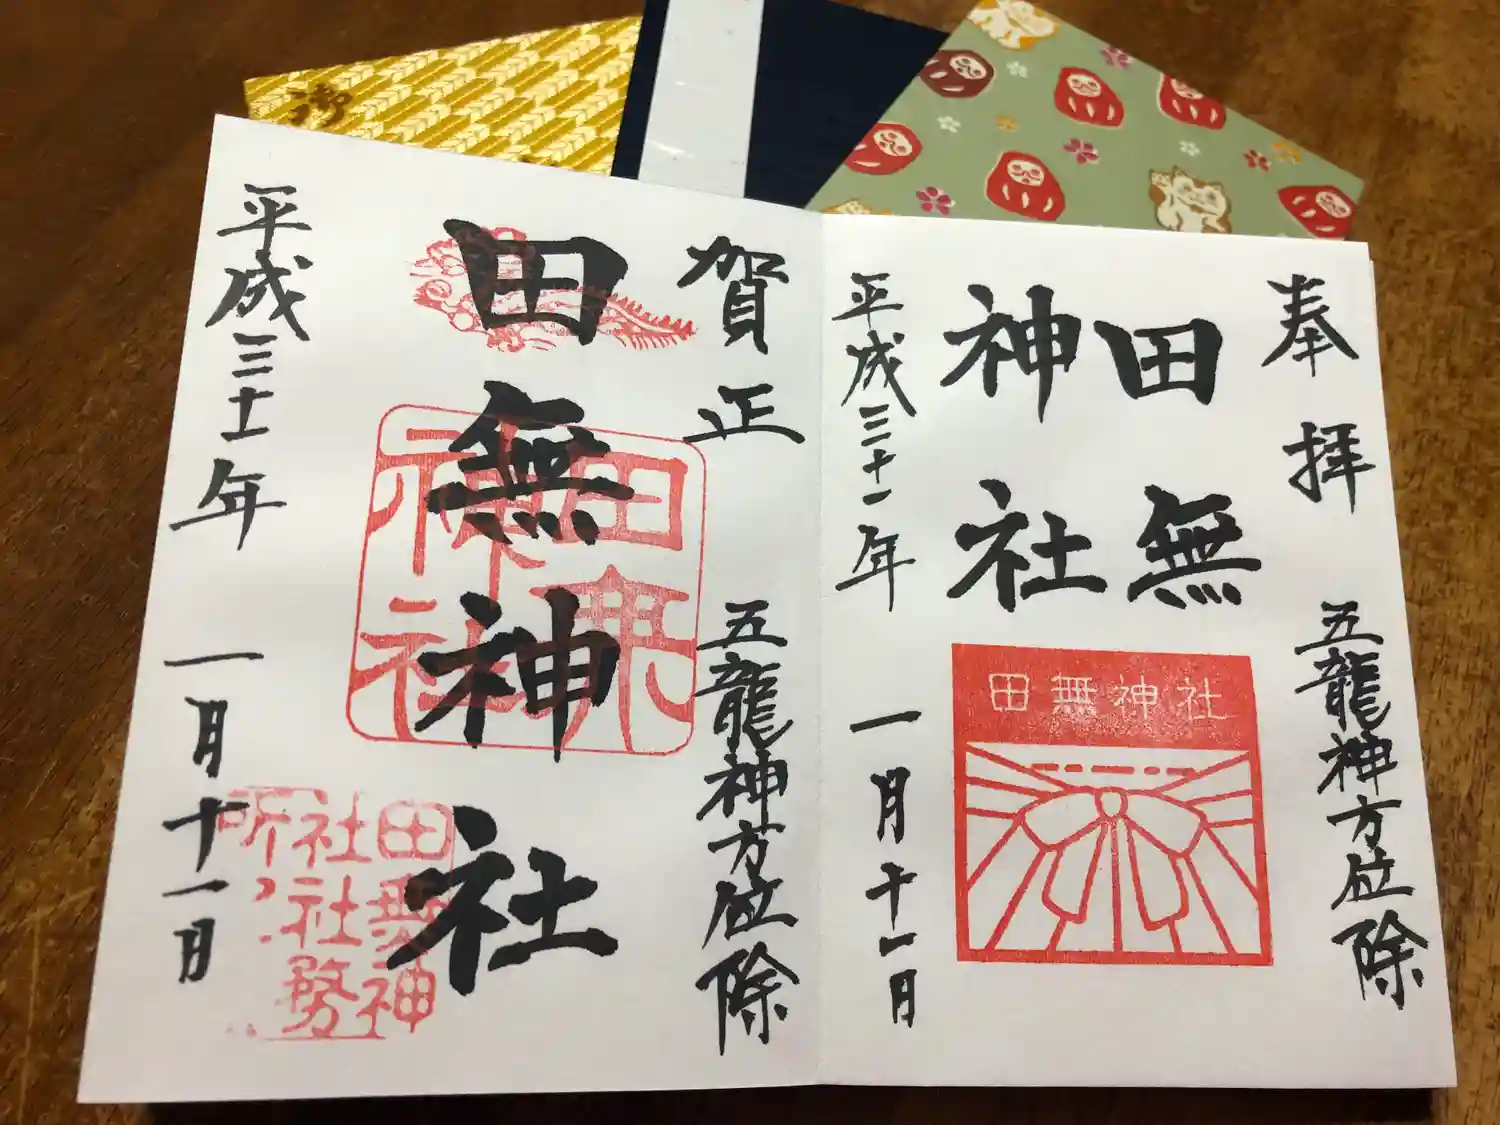 奉拝
五龍神方位除
田無
神社
田無神社
平成三十一年
一月十一日
賀正
五龍神方位除
田無神社
田無神社
田無神社社務所
平成三十一年
一月十一日
御